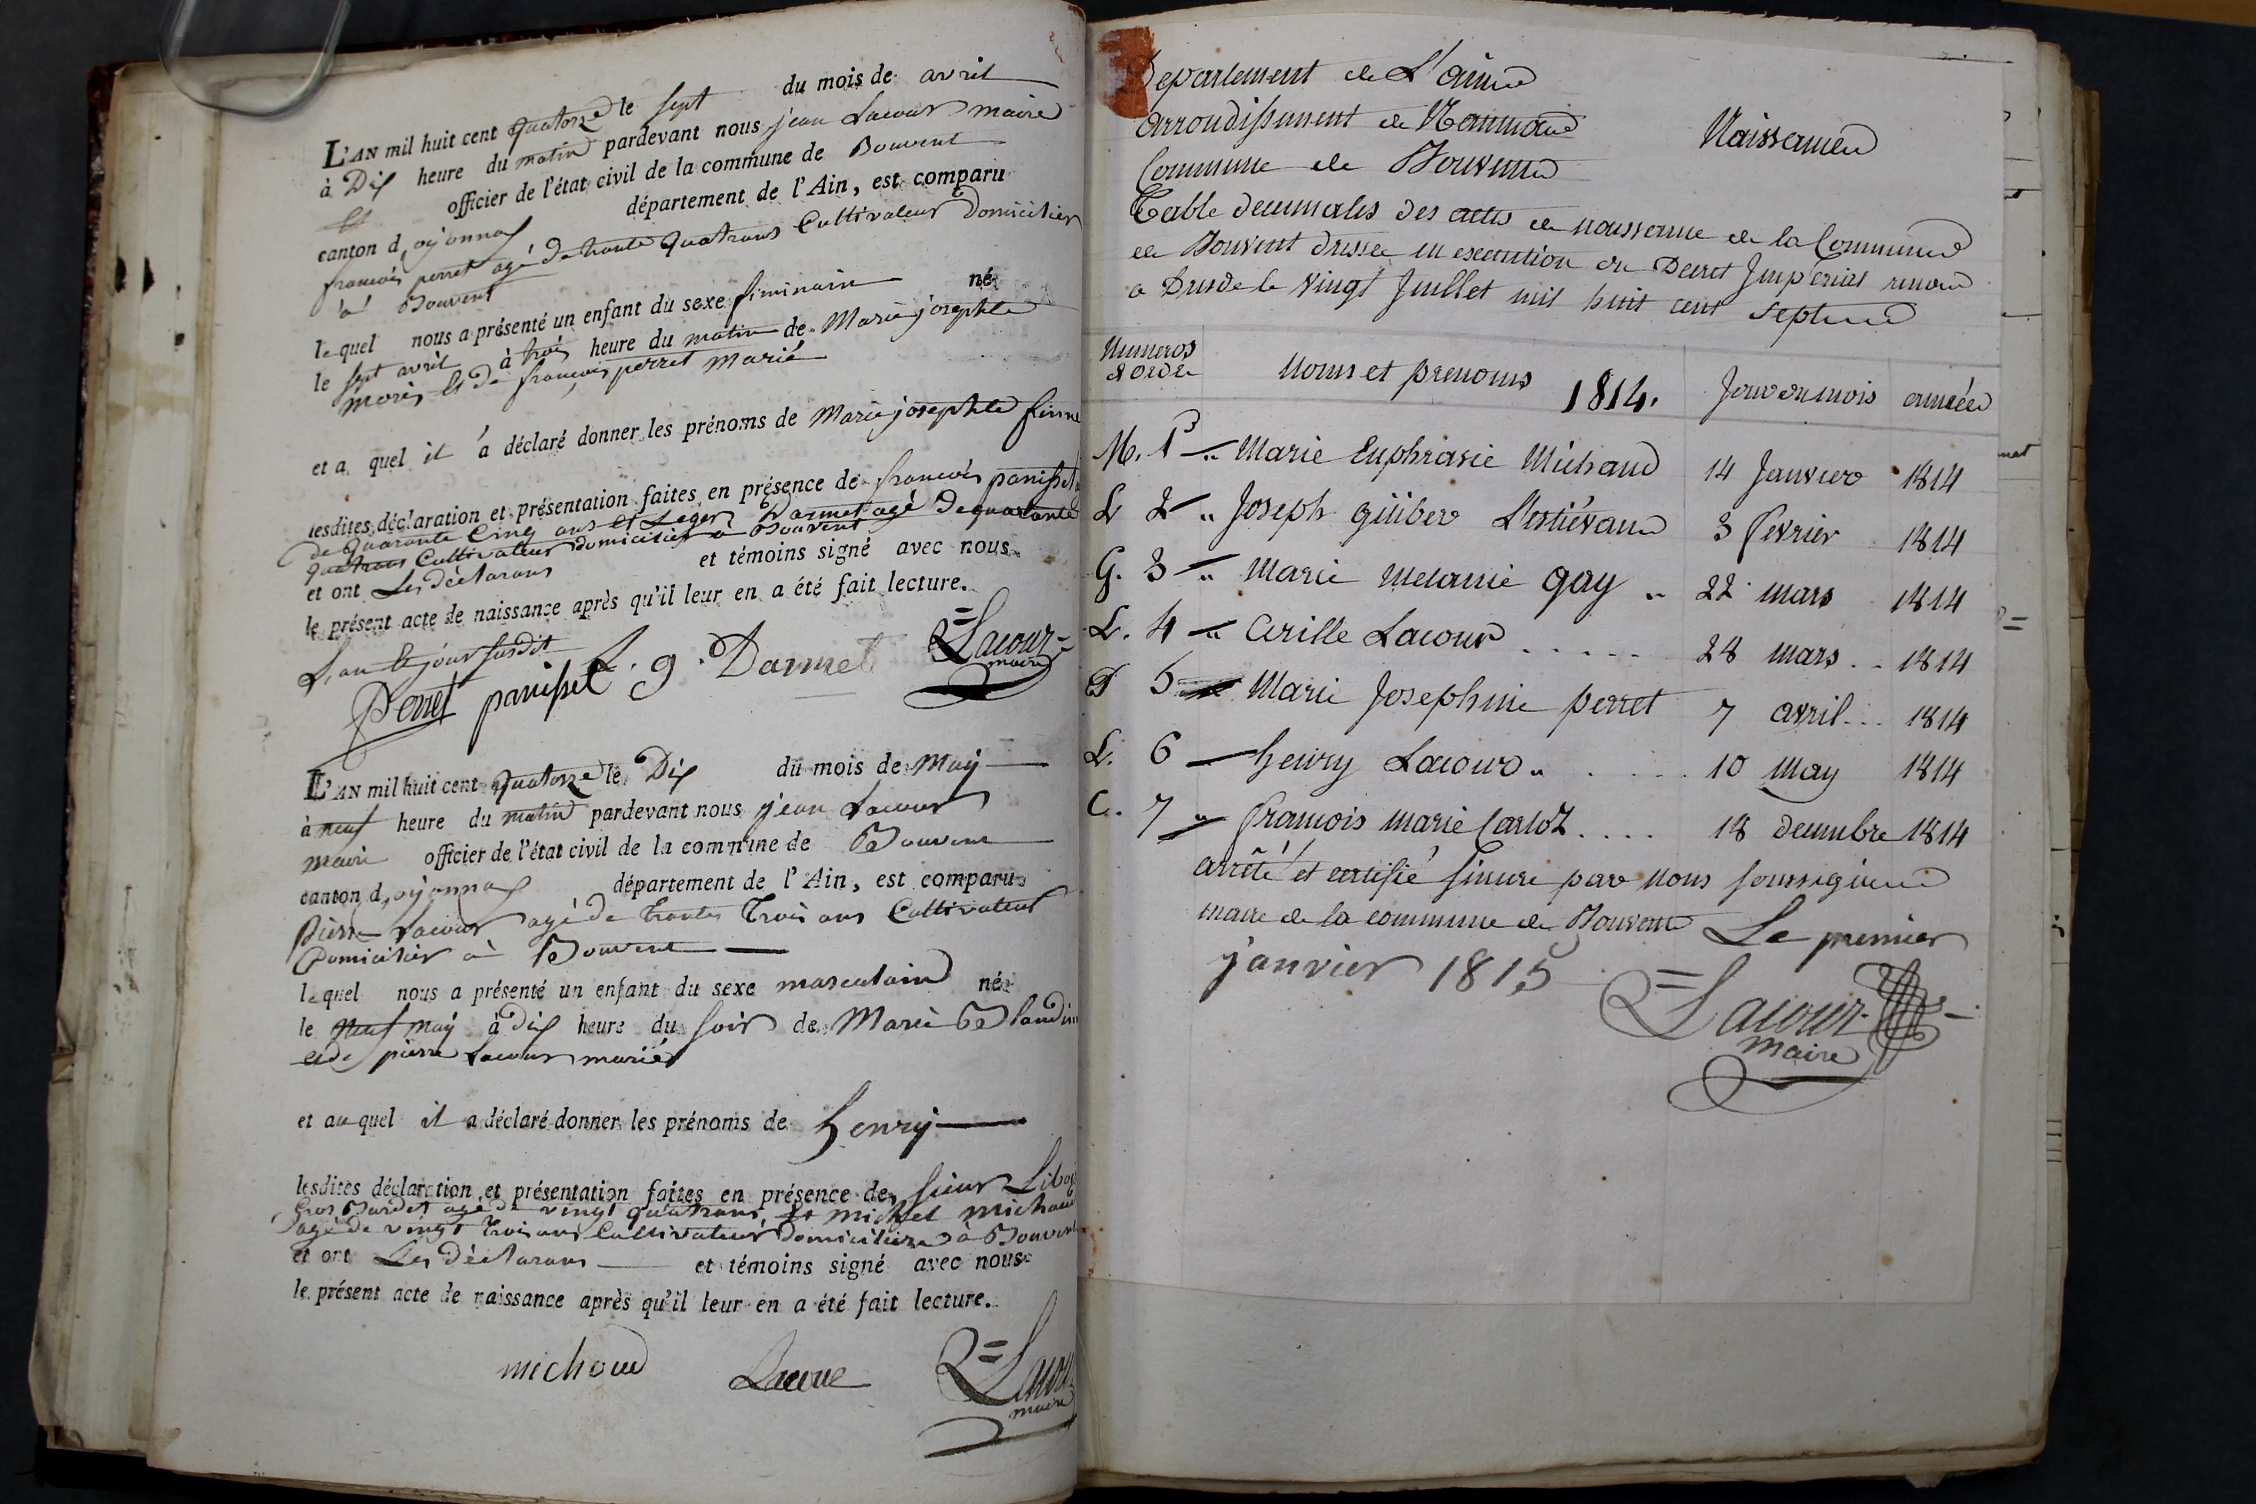 L'AN mil huit cent quatorze le sept du mois de avril
à Dix heure du matin pardevant nous jean Lacour maire
et officier de l'état civil de la commune de Bouvent
canton d, oÿonnax département de l'Ain, est comparu
francois perret agé de trante quatrans Cultivateur Domicilier
à Bouvent
lequel nous a présenté un enfant du sexe fiminain né
le sept avril à trois heure du matin de Marie josephte
moris et de francois perret marié
et a quel il a déclaré donner les prénoms de Marie josephte finne
lesdites déclaration et présentation faites en présence de francois panisset
de quarante Cinq ans et Leger Darmet agé de quarante
quatrans Cultivateur domicilier a Bouvent
et ont Les déclarans et témoins signé avec nous
le présent acte de naissance après qu'il leur en a été fait lecture.
L'an et jour susdit
Perret panisset L. g. Darmet Lacour
maire
L'AN mil huit cent quatorze le Dix du mois de Maÿ
à neuf heure du matin pardevant nous jean Lacour
maire officier de l'état civil de la commune de Bouvent
canton d, oÿonnax département de l'Ain, est comparu
Pierre Lacour agé de trante trois ans Cultivateur
Domicilier à Bouvent
lequel nous a présenté un enfant du sexe masculain né
le neuf maÿ à dix heure du soir de Marie
et de pierre Lacour mariés
et au quel il a déclaré donner les prénoms de henrÿ
lesdites déclaration et présentation faites en présence de sieur
Gros Burdet agé de vingt quatrans et michel michaud
agé de vingt trois ans Cultivateur domicilier à Bouvent
et ont Les déclarans et témoins signé avec nous
le présent acte de naissance après qu'il leur en a été fait lecture.
michoud Lacour Lacour
maire
Departement de L'ain
arrondissement de Nantua Naissances
Commune de Bouvent
Table decennales des actes de naissance de la Commune
de Bouvent dressée en execution du Decret Imperial rendu
a le vingt Juillet mil huit cent sept
Numeros d'ordre Noms et prenoms 1814. Jour du mois année
M. 1 Marie Euphrasie Michaud 14 Janvier 1814
L 2 Joseph 3 fevrier 1814
G. 3 Marie Melanie gay 22 mars 1814
L. 4 Cirille Lacour 28 mars 1814
P 5 Marie Josephine perret 7 avril 1814
L. 6 henry Lacour 10 May 1814
C. 7 francois marie Carloz 18 decembre 1814
arrêté et certifié sincere par nous soussigné
maire de la commune de Bouvent Le premier
janvier 1815
Lacour
maire